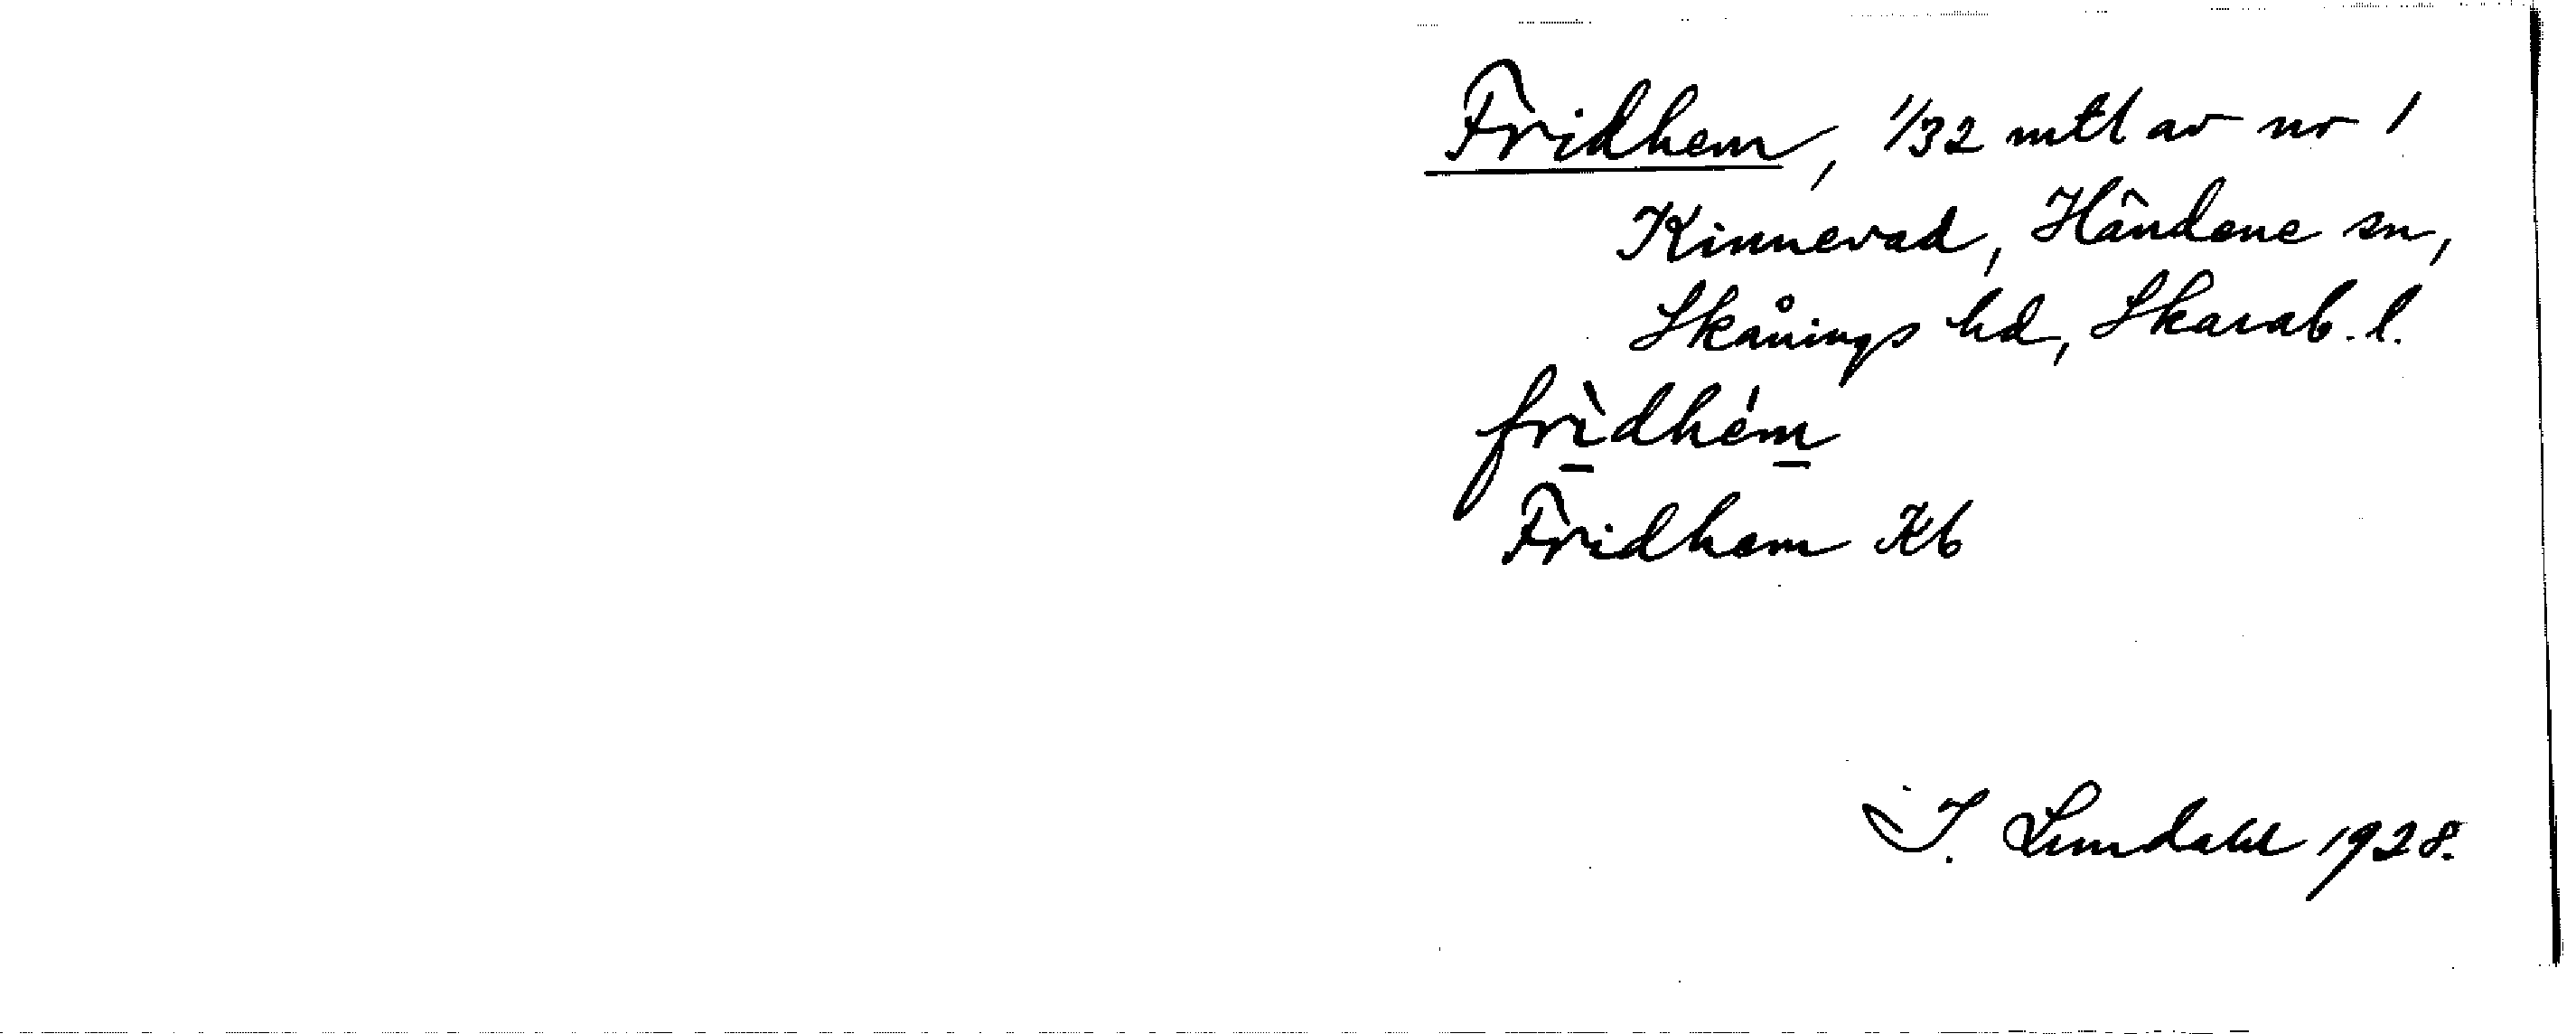 Fridhem, 1/32 mtl av nr 1
Kinnevad, Händene sn,
Skånings hd, Skarab. l.
fri̱dhém̱
Fridhem Kb
I. Lundahl 1928.